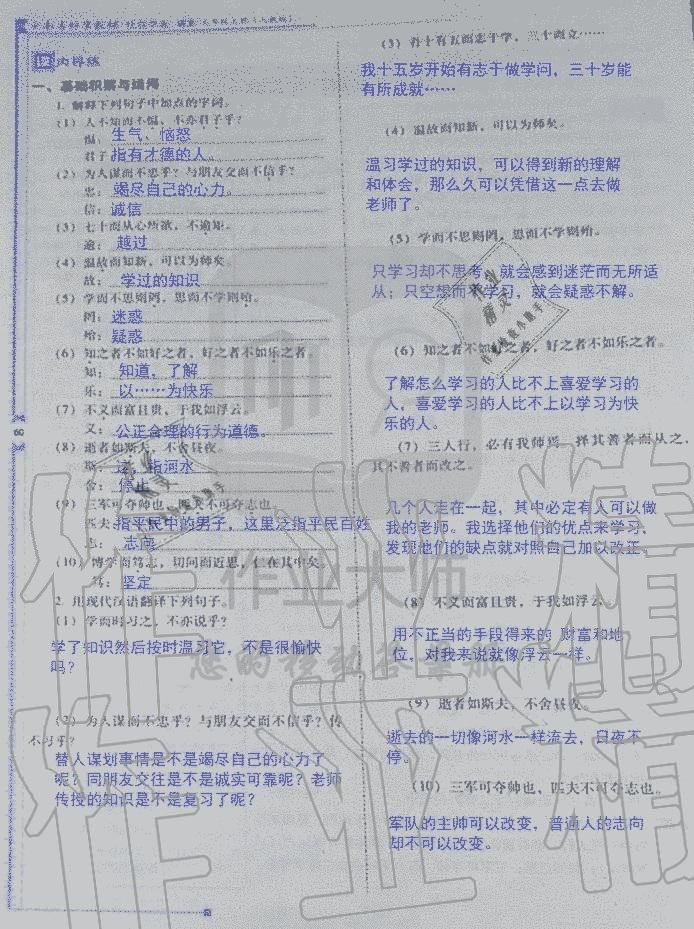 12 内容练
一、基础积累与运用
1. 解释下列句子中加点的字词。
(1) 人不知而不愠，不亦君子乎？
愠：生气、恼怒
君子：指有才德的人。
(2) 为人谋而不忠乎？与朋友交而不信乎？
忠：竭尽自己的心力。
信：诚信
(3) 七十而从心所欲，不逾矩。
逾：越过
(4) 温故而知新，可以为师矣。
故：学过的知识
(5) 学而不思则罔，思而不学则殆。
罔：迷惑
殆：疑惑
(6) 知之者不如好之者，好之者不如乐之者。
知：知道，了解
乐：以……为快乐
(7) 不义而富且贵，于我如浮云。
义：公正合理的行为道德。
(8) 逝者如斯夫，不舍昼夜。
斯：这，指河水
舍：停止
(9) 三军可夺帅也，匹夫不可夺志也。
匹夫：指平民中的男子，这里泛指平民百姓
志：志向
(10) 博学而笃志，切问而近思，仁在其中矣。
笃：坚定
2. 用现代汉语翻译下列句子。
(1) 学而时习之，不亦说乎？
学了知识然后按时温习它，不是很愉快
吗？
(2) 为人谋而不忠乎？与朋友交而不信乎？传
不习乎？
替人谋划事情是不是竭尽自己的心力了
呢？同朋友交往是不是诚实可靠呢？老师
传授的知识是不是复习了呢？
60
(3) 吾十有五而志于学，三十而立……
我十五岁开始有志于做学问，三十岁能
有所成就……
(4) 温故而知新，可以为师矣。
温习学过的知识，可以得到新的理解
和体会，那么久可以凭借这一点去做
老师了。
(5) 学而不思则罔，思而不学则殆。
只学习却不思考，就会感到迷茫而无所适
从；只空想而不学习，就会疑惑不解。
(6) 知之者不如好之者，好之者不如乐之者。
了解怎么学习的人比不上喜爱学习的
人，喜爱学习的人比不上以学习为快
乐的人。
(7) 三人行，必有我师焉。择其善者而从之，
其不善者而改之。
几个人走在一起，其中必定有人可以做
我的老师。我选择他们的优点来学习，
发现他们的缺点就对照自己加以改正。
(8) 不义而富且贵，于我如浮云。
用不正当的手段得来的 财富和地
位，对我来说就像浮云一样。
(9) 逝者如斯夫，不舍昼夜。
逝去的一切像河水一样流去，日夜不
停。
(10) 三军可夺帅也，匹夫不可夺志也。
军队的主帅可以改变，普通人的志向
却不可以改变。
作业大师
作业精灵